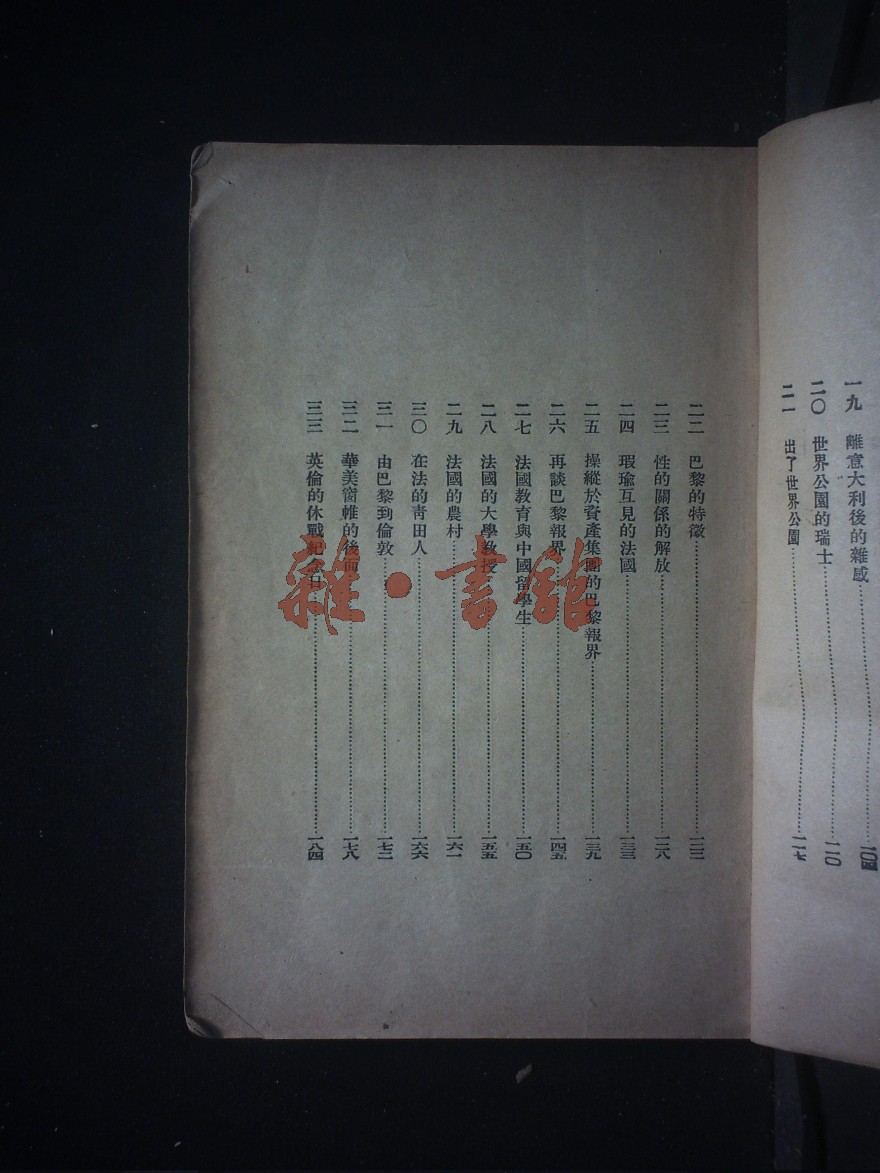 一九　離意大利後的雜感……一〇四
二〇　世界公園的瑞士……一一〇
二一　出了世界公園……一一七
二二　巴黎的特徵……一二三
二三　性的關係的解放……一二八
二四　瑕瑜互見的法國……一三三
二五　操縱於資產集團的巴黎報界……一三九
二六　再談巴黎報界……一四五
二七　法國教育與中國留學生……一五〇
二八　法國的大學教授……一五五
二九　法國的農村……一六一
三〇　在法的青田人……一六六
三一　由巴黎到倫敦……一七二
三二　華美窗帷的後面……一七八
三三　英倫的休戰紀念日……一八四
雜·書館